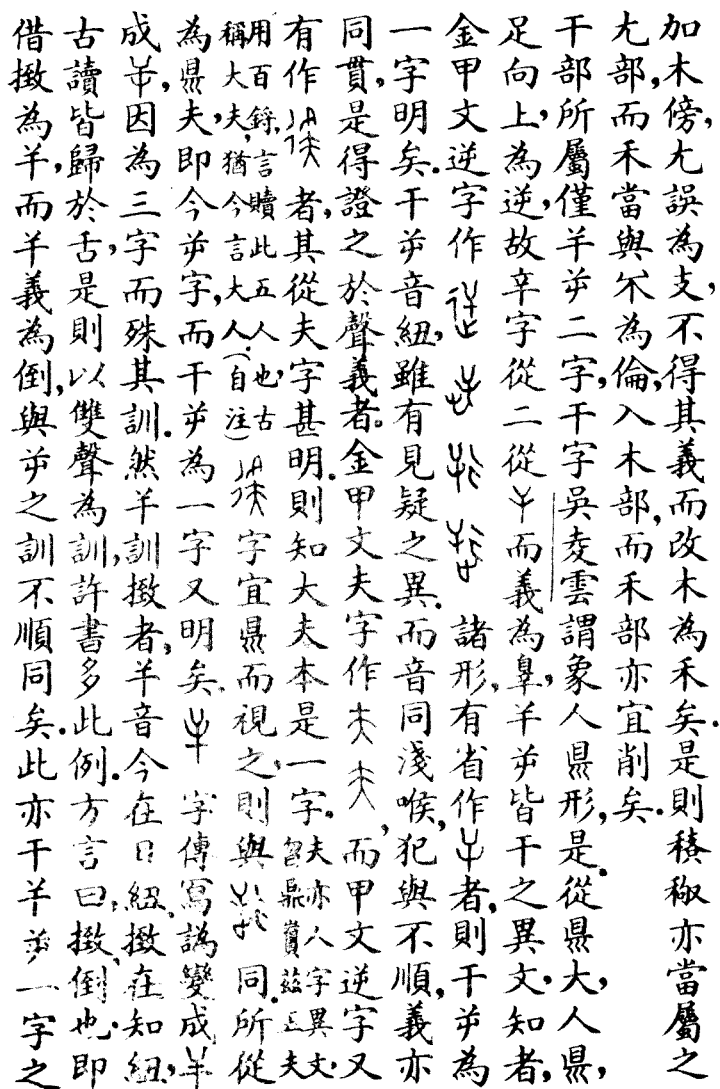 加木傍,尢誤為支,不得其義而改木為禾矣.是則𥡴𥝌亦當屬之
尢部,而禾當與不為倫,入木部,而禾部亦宜削矣.
干部所屬僅𢆉屰二字,干字吳夌雲謂象人㬎形,是從㬎大,人㬎,
足向上,為逆,故辛字從二從𢆉而義為辠,𢆉屰皆干之異文,知者,
金甲文逆字作 諸形,有省作 者,則干屰為
一字明矣.干屰音紐,雖有見疑之異.而音同淺喉,犯與不順,義亦
同貫,是得證之於聲義者.金甲文夫字作 ,而甲文逆字又
有作 者,其從夫字甚明.則知大夫本是一字.夫亦人字異文,曶鼎賞茲五夫
用百鋝,言贖此五人也,古稱大夫,猶今言大人.(自注) 字宜㬎而視之,則與 同.所從
為㬎夫,即今屰字,而干屰為一字又明矣. 字傳寫譌變成𢆉
成屰,因為三字而殊其訓.然𢆉訓撖者,𢆉音今在日紐,撖在知紐,
古讀皆歸於舌,是則以雙聲為訓,許書多此例.方言曰,撖,倒也,即
借撖為𢆉,而𢆉義為倒,與屰之訓不順同矣.此亦干𢆉屰一字之